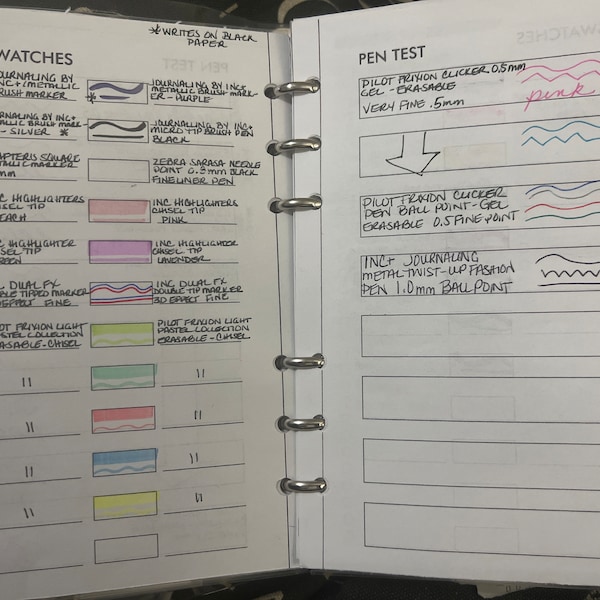 * WRITES ON BLACK
PAPER
WATCHES
JOURNALING BY
INC+ METALLIC
BRUSH MARKER
JOURNALING BY INC+
METALLIC BRUSH MARK-
ER - PURPLE
*
JOURNALING BY INC+
METALLIC BRUSH MARK-
- SILVER *
JOURNALLING BY INC+
MICRO TIP BRUSH PEN
BLACK
SQUARE
METALLIC MARKER
mm
ZEBRA SARASA NEEDLE
POINT 0.3mm BLACK
FINELINER PEN
INC HIGHLIGHTERS
CHISEL TIP
PEACH
INC HIGHLIGHTERS
CHISEL TIP
PINK
INC HIGHLIGHTER
CHISEL TIP
INC HIGHLIGHTER
CHISEL TIP
LAVENDER
DUAL FX
DOUBLE TIPPED MARKER
EFFECT FINE
INC DUAL FX
DOUBLE TIP MARKER
3D EFFECT FINE
PILOT FRIXION LIGHT
PASTEL COLLECTION
ERASABLE-CHISEL
PILOT FRIXION LIGHT
PASTEL COLLECTION
ERASABLE-CHISEL
" "
" "
" "
" "
PEN TEST
PILOT FRIXION CLICKER 0.5mm
GEL - ERASABLE
VERY FINE .5mm
pink
PILOT FRIXION CLICKER
PEN BALL POINT-GEL
ERASABLE 0.5 FINE POINT
INC+ JOURNALING
METAL TWIST-UP FASHION
PEN 1.0mm BALLPOINT